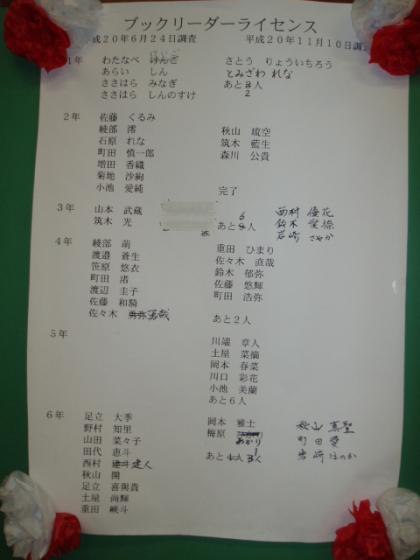 ブックリーダーライセンス
成20年6月24日調査 平成20年11月10日調
1年 わたなべ けんご さとう りょういちろう
あらい しん とみざわ れな
ささはら みなぎ あと3人
ささはら しんのすけ 2
2年 佐藤 くるみ
綾部 澪 秋山 琉空
石原 れな 筑木 藍生
町田 慎一郎 森川 公貴
増田 香織
菊地 沙絢
小池 愛純 完了
3年 山本 武蔵 6 西村 優花
筑木 光 あと8人 鈴木
岩崎 さやか
4年 綾部 萌 重田 ひまり
渡邉 蒼生 佐々木 直哉
笹原 悠衣 鈴木 郁弥
町田 渚 佐藤 悠輝
渡辺 圭子 町田 浩弥
佐藤 和騎
佐々木 勇哉 あと2人
5年 川端 章人
土屋 菜摘
岡本 春菜
川口 彩花
小池 美蘭
あと6人
6年 足立 大季 岡本 雅士 秋山
野村 知里 梅原 あかり 町田 愛
山田 菜々子 岩崎 ほのか
田代 恵斗 あと4人
西村 建人
秋山 開
足立 喜與貴
土屋 尚輝
重田 峻斗